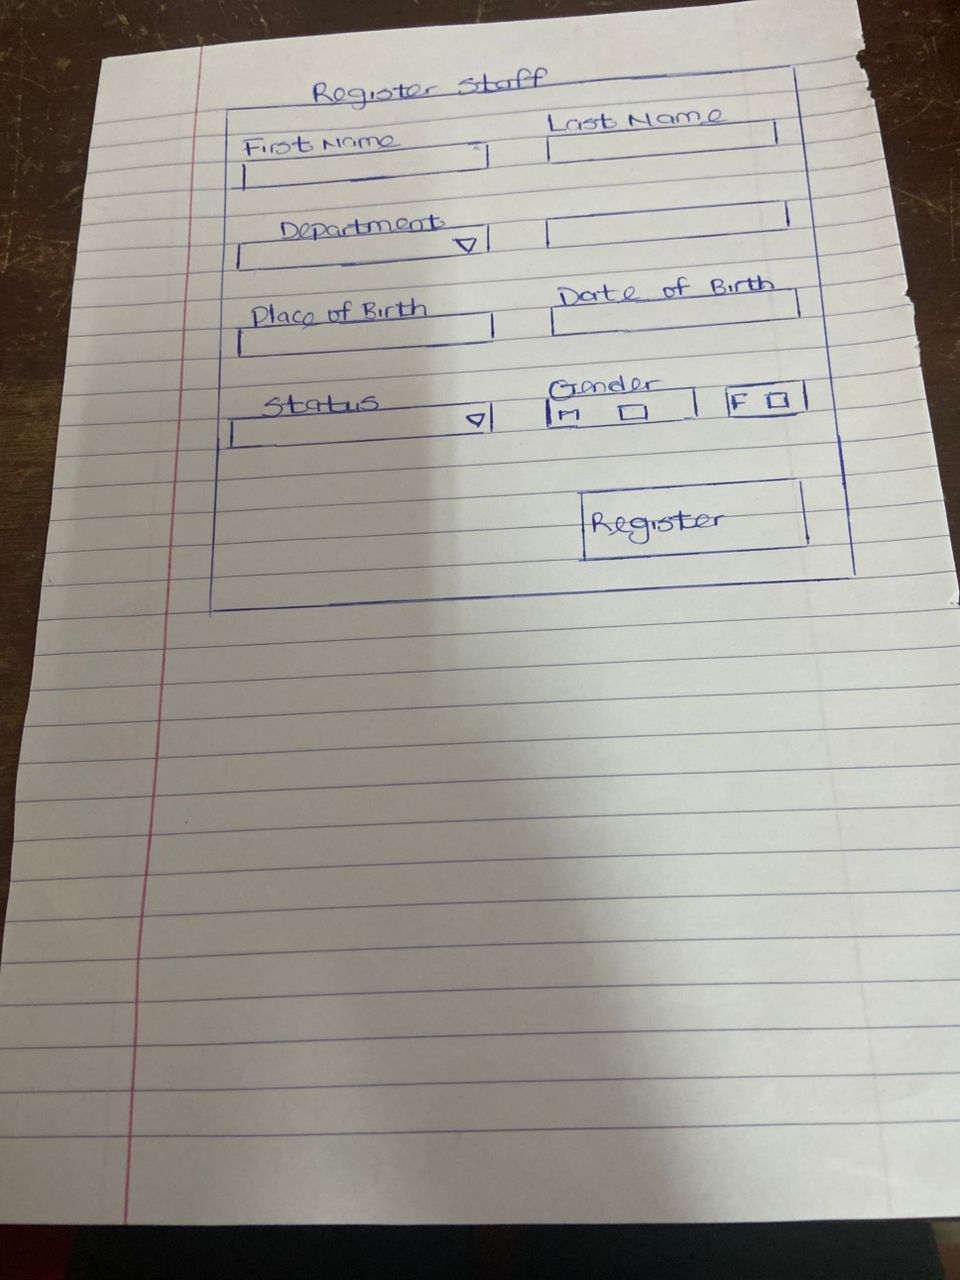 Register Staff
First Name Last Name
Department
Place of Birth Date of Birth
Status Gender
M F
Register